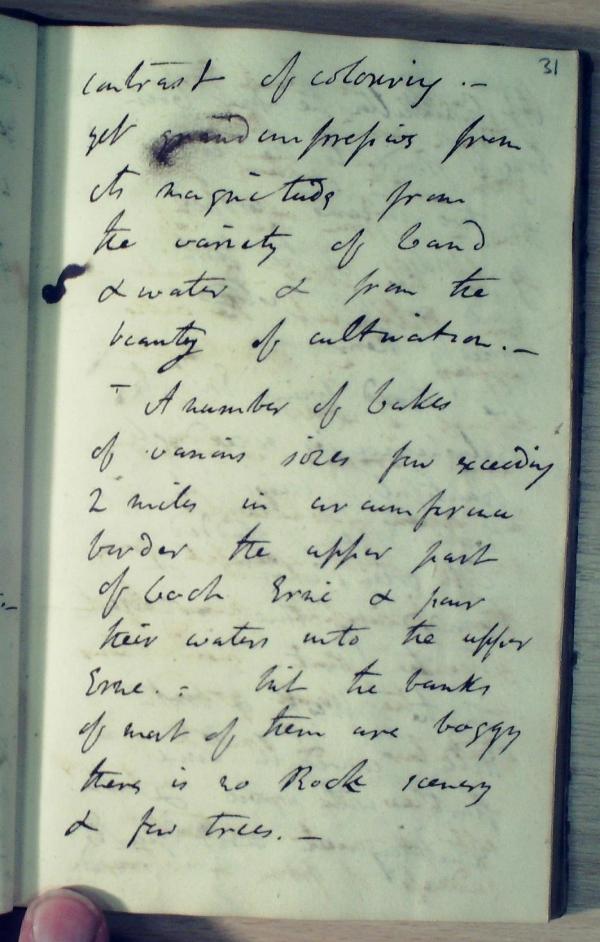 31
contrast of colouring. —
yet grand impressive from
its magnitude from
the variety of land
& water & from the
beauty of cultivation. —
— A number of lakes
of various sizes few exceeding
2 miles in circumference
border the upper part
of Loch Erne & pour
their waters into the upper
Erne. – but the banks
of most of them are boggy
there is no Rock scenery
& few trees. —